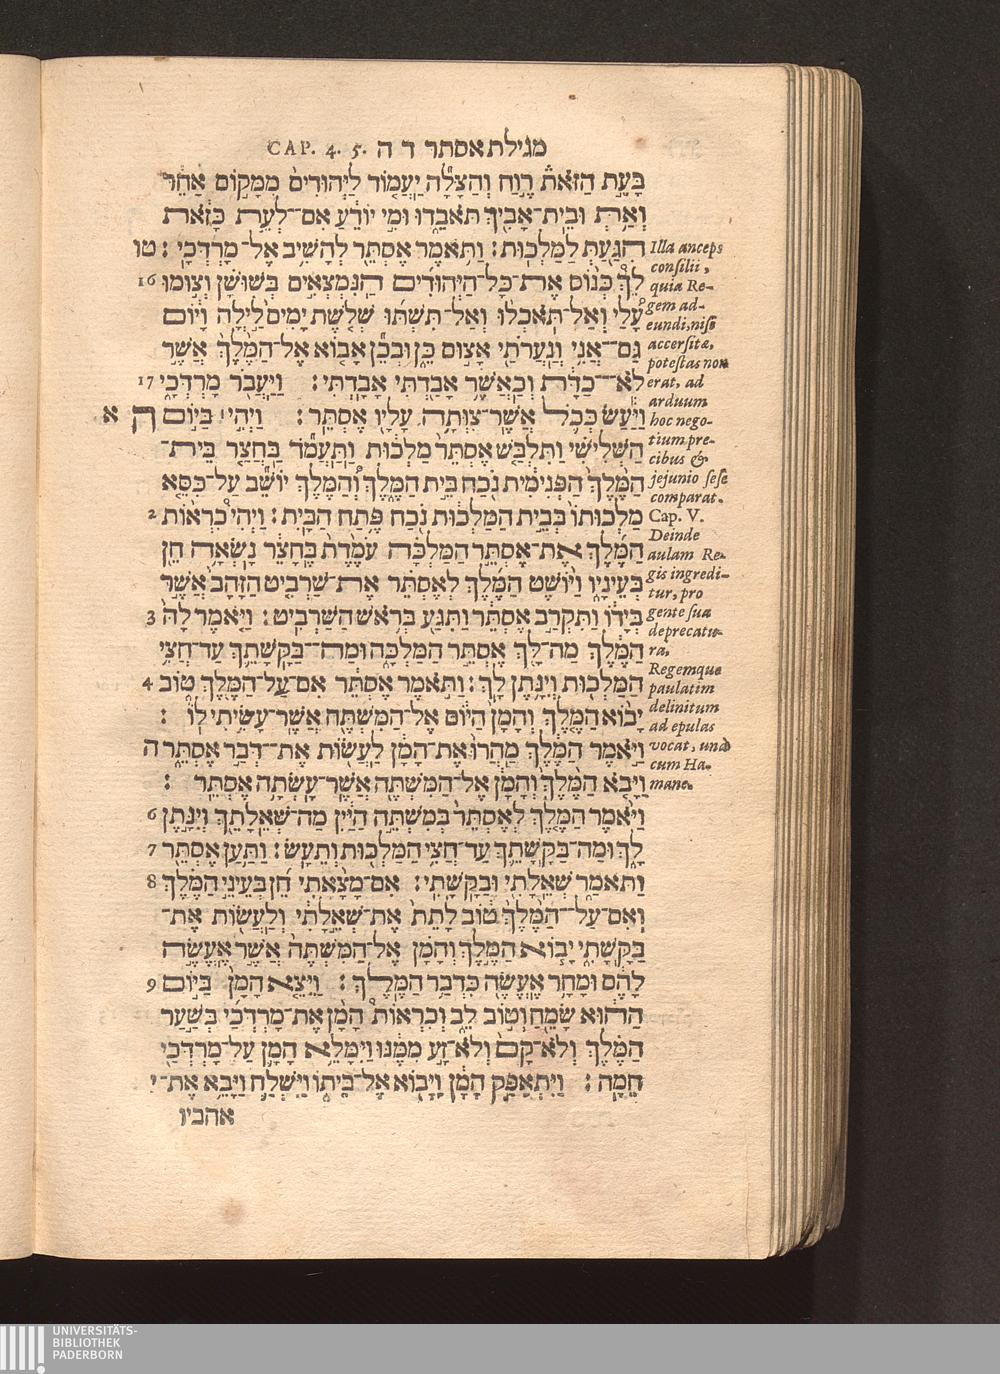 CAP. 4. 5. מגילת אסתר ד ה
בָּעֵת הַזֹּאת רֶוַח וְהַצָּלָה יַעֲמוֹד לַיְּהוּדִים מִמָּקוֹם אַחֵר
וְאַתְּ וּבֵית־אָבִיךְ תֹּאבֵדוּ וּמִי יוֹדֵעַ אִם־לְעֵת כָּזֹאת
הִגַּעַתְּ לַמַּלְכוּת׃ וַתֹּאמֶר אֶסְתֵּר לְהָשִׁיב אֶל־מָרְדֳּכָי׃ טו
לֵךְ כְּנוֹס אֶת־כָּל־הַיְּהוּדִים הַנִּמְצְאִים בְּשׁוּשָׁן וְצוּמוּ 16
עָלַי וְאַל־תֹּאכְלוּ וְאַל־תִּשְׁתּוּ שְׁלֹשֶׁת יָמִים לַיְלָה וָיוֹם
גַּם־אֲנִי וְנַעֲרֹתַי אָצוּם כֵּן וּבְכֵן אָבוֹא אֶל־הַמֶּלֶךְ אֲשֶׁר
לֹא־כַדָּת וְכַאֲשֶׁר אָבַדְתִּי אָבָדְתִּי׃ וַיַּעֲבֹר מָרְדֳּכָי 17
וַיַּעַשׂ כְּכֹל אֲשֶׁר־צִוְּתָה עָלָיו אֶסְתֵּר׃ וַיְהִי בַּיּוֹם ה א
הַשְּׁלִישִׁי וַתִּלְבַּשׁ אֶסְתֵּר מַלְכוּת וַתַּעֲמֹד בַּחֲצַר בֵּית־
הַמֶּלֶךְ הַפְּנִימִית נֹכַח בֵּית הַמֶּלֶךְ וְהַמֶּלֶךְ יוֹשֵׁב עַל־כִּסֵּא
מַלְכוּתוֹ בְּבֵית הַמַּלְכוּת נֹכַח פֶּתַח הַבָּיִת׃ וַיְהִי כִרְאוֹת 2
הַמֶּלֶךְ אֶת־אֶסְתֵּר הַמַּלְכָּה עֹמֶדֶת בֶּחָצֵר נָשְׂאָה חֵן
בְּעֵינָיו וַיּוֹשֶׁט הַמֶּלֶךְ לְאֶסְתֵּר אֶת־שַׁרְבִיט הַזָּהָב אֲשֶׁר
בְּיָדוֹ וַתִּקְרַב אֶסְתֵּר וַתִּגַּע בְּרֹאשׁ הַשַּׁרְבִיט׃ וַיֹּאמֶר לָהּ 3
הַמֶּלֶךְ מַה־לָּךְ אֶסְתֵּר הַמַּלְכָּה וּמַה־בַּקָּשָׁתֵךְ עַד־חֲצִי
הַמַּלְכוּת וְיִנָּתֵן לָךְ׃ וַתֹּאמֶר אֶסְתֵּר אִם־עַל־הַמֶּלֶךְ טוֹב 4
יָבוֹא הַמֶּלֶךְ וְהָמָן הַיּוֹם אֶל־הַמִּשְׁתֶּה אֲשֶׁר־עָשִׂיתִי לוֹ׃
וַיֹּאמֶר הַמֶּלֶךְ מַהֲרוּ אֶת־הָמָן לַעֲשׂוֹת אֶת־דְּבַר אֶסְתֵּר ה
וַיָּבֹא הַמֶּלֶךְ וְהָמָן אֶל־הַמִּשְׁתֶּה אֲשֶׁר־עָשְׂתָה אֶסְתֵּר׃
וַיֹּאמֶר הַמֶּלֶךְ לְאֶסְתֵּר בְּמִשְׁתֵּה הַיַּיִן מַה־שְּׁאֵלָתֵךְ וְיִנָּתֶן 6
לָךְ וּמַה־בַּקָּשָׁתֵךְ עַד־חֲצִי הַמַּלְכוּת וְתֵעָשׂ׃ וַתַּעַן אֶסְתֵּר 7
וַתֹּאמַר שְׁאֵלָתִי וּבַקָּשָׁתִי׃ אִם־מָצָאתִי חֵן בְּעֵינֵי הַמֶּלֶךְ 8
וְאִם־עַל־הַמֶּלֶךְ טוֹב לָתֵת אֶת־שְׁאֵלָתִי וְלַעֲשׂוֹת אֶת־
בַּקָּשָׁתִי יָבוֹא הַמֶּלֶךְ וְהָמָן אֶל־הַמִּשְׁתֶּה אֲשֶׁר אֶעֱשֶׂה
לָהֶם וּמָחָר אֶעֱשֶׂה כִּדְבַר הַמֶּלֶךְ׃ וַיֵּצֵא הָמָן בַּיּוֹם 9
הַהוּא שָׂמֵחַ וְטוֹב לֵב וְכִרְאוֹת הָמָן אֶת־מָרְדֳּכַי בְּשַׁעַר
הַמֶּלֶךְ וְלֹא־קָם וְלֹא־זָע מִמֶּנּוּ וַיִּמָּלֵא הָמָן עַל־מָרְדֳּכַי
חֵמָה׃ וַיִּתְאַפַּק הָמָן וַיָּבוֹא אֶל־בֵּיתוֹ וַיִּשְׁלַח וַיָּבֵא אֶת־י
אהביו
Illa anceps
consilii,
quia Re-
gem ad-
eundi, nisi
accersitæ,
potestas non
erat, ad
arduum
hoc nego-
tium pre-
cibus &
jejunio sese
comparat.
Cap. V.
Deinde
aulam Re-
gis ingredi-
tur, pro
gente sua
deprecatu-
ra,
Regemque
paulatim
delinitum
ad epulas
vocat, una
cum Ha-
mane.
UNIVERSITÄTS-
BIBLIOTHEK
PADERBORN